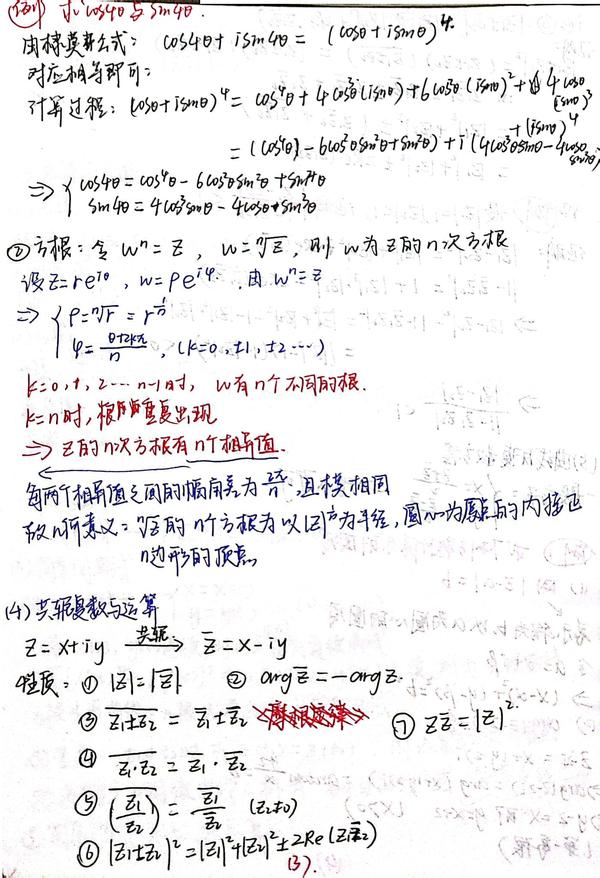 例1 求cos4θ与sin4θ.
由棣莫弗公式: cos4θ + isin4θ = (cosθ + isinθ)⁴
对应相等即可:
计算过程: (cosθ + isinθ)⁴ = cos⁴θ + 4cos³θ(isinθ) + 6cos²θ(isinθ)² + 4cosθ(isinθ)³ + (isinθ)⁴
= (cos⁴θ - 6cos²θsin²θ + sin⁴θ) + i(4cos³θsinθ - 4cosθsin³θ)
⇒ { cos4θ = cos⁴θ - 6cos²θsin²θ + sin⁴θ
sin4θ = 4cos³sinθ - 4cosθ·sin³θ
② 方根: 令 wⁿ = z , w = ⁿ√z , 则 w 为 z 的 n 次方根
设 z = re^{iθ} , w = ρe^{iφ} . 由 wⁿ = z
⇒ { ρ = ⁿ√r = r^{1/n}
φ = (θ+2kπ)/n , (k=0, ±1, ±2 ⋯)
k=0, 1, 2 ⋯ n-1时, w有n个不同的根.
k=n时, 根重复出现
⇒ z的n次方根有n个相异值.
每两个相异值之间的幅角差为 2π/n , 且模相同
故几何意义: ⁿ√z 的 n个方根为以|z|^{1/n}为半径, 圆心为原点的内接正
n边形的顶点
(4) 共轭复数与运算
z = x+iy 共轭→ z̄ = x-iy
性质: ① |z| = |z̄| ② arg z̄ = -arg z.
③ \overline{z₁±z₂} = z̄₁ ± z̄₂ <摩根定律> ⑦ z z̄ = |z|².
④ \overline{z₁·z₂} = z̄₁ · z̄₂
⑤ \overline{(z₁/z₂)} = z̄₁/z̄₂ (z₂≠0)
⑥ |z₁±z₂|² = |z₁|² + |z₂|² ± 2Re(z₁z̄₂)
(3).